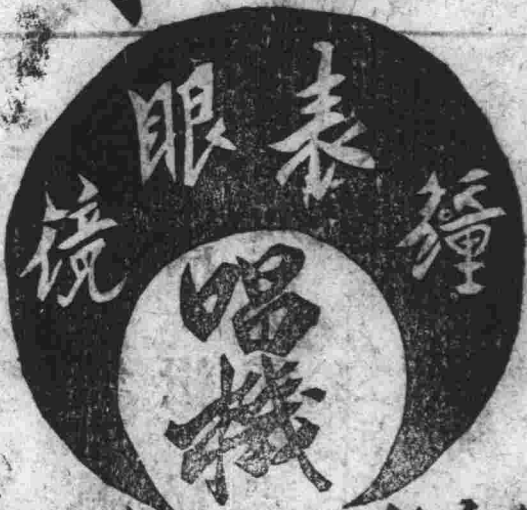 鐘表眼鏡
唱機